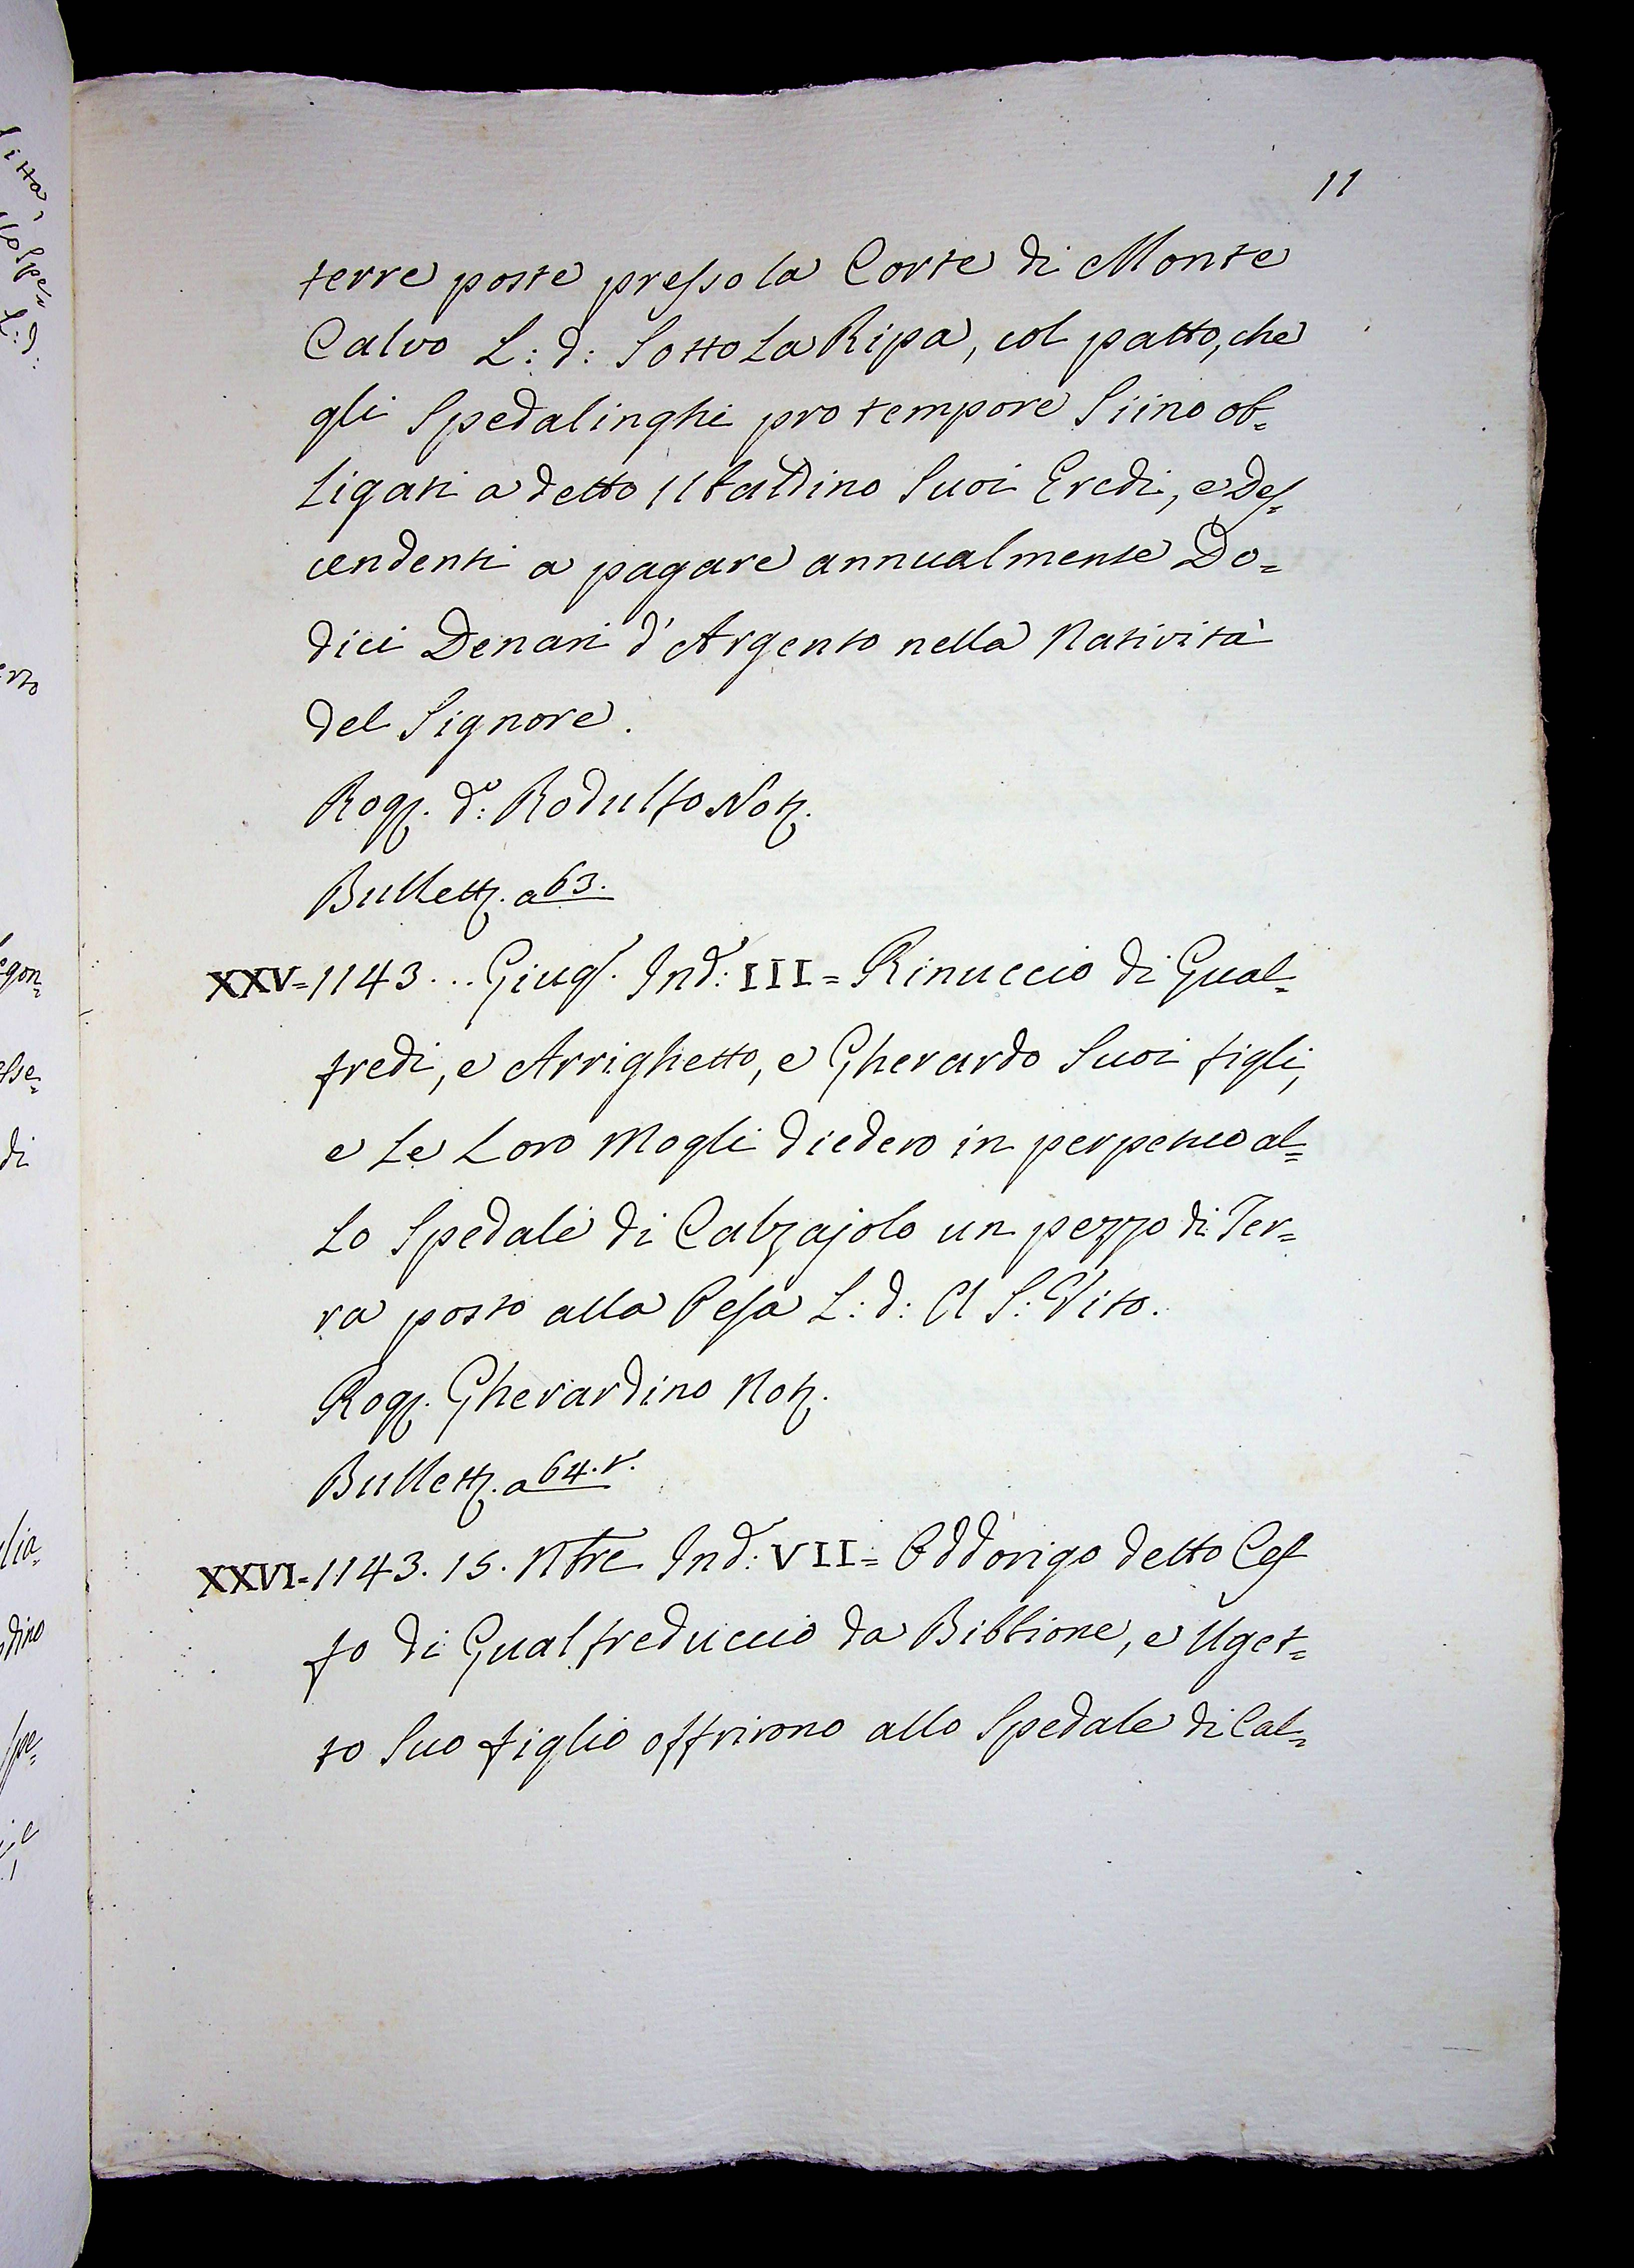 11
terre poste presso la Corte di Monte
Calvo L: d: Sotto La Ripa, col patto, che
gli Spedalinghi pro tempore Siino ob=
ligati a detto Ubaldino Suoi Eredi, e Des=
cendenti a pagare annualmente Do=
dici Denari d'Argento nella Natività
del Signore.
Rogg. d.o: Rodulfo Notz.
Bullett. a 63.
XXV=1143... Giug.o Ind: III= Rinuccio di Gual=
fredi, e Arrighetto, e Gherardo Suoi figli,
e Le Loro Mogli diedero in perpetuo al=
Lo Spedale di Calzajolo un pezzo di Ter=
ra posto alla Pesa L: d: A S: Vito.
Rogg. Gherardino Notz.
Bullett. a 64. v.
XXVI=1143. 15. Nbre Ind: VII= Oddorigo detto Cef
fo di Gualfreduccio da Bibbione, e Uget=
to Suo figlio offrirono allo Spedale di Cal=